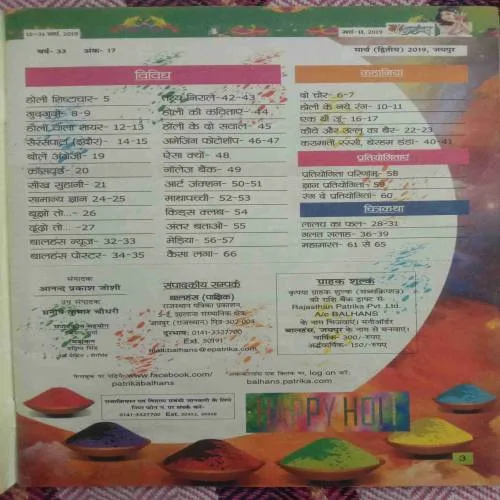 15-31 मार्च, 2019
मार्च-II, 2019
वर्ष- 33 अंक- 17
मार्च (द्वितीय) 2019, जयपुर
विविध
होली शिष्टाचार- 5
गुदगुदी- 8-9
होली वाला शायर- 12-13
सैरसपाटा (इंदौर)- 14-15
बोलें अंग्रेजी- 19
क्रॉसवर्ड- 20
सीख सुहानी- 21
सामान्य ज्ञान 24-25
बूझो तो... - 26
ढूंढ़ो तो... -27
बालहंस न्यूज- 32-33
बालहंस पोस्टर- 34-35
तथ्य निराले-42-43
होली की कविताएं- 44
होली के दो सवाल- 45
अमेजिंग फोटोशॉप- 46-47
ऐसा क्यों- 48
नॉलेज बैंक- 49
आर्ट जंक्शन- 50-51
माथापच्ची- 52-53
किड्स क्लब- 54
अंतर बताओ- 55
मेडिया- 56-57
कैसा लगा- 66
कहानियां
दो चोर- 6-7
होली के नये रंग- 10-11
एक थी जूं- 16-17
कौवे और उल्लू का बैर- 22-23
करामाती रस्सी, बेरहम डंडा- 40-41
प्रतियोगिताएं
प्रतियोगिता परिणाम- 58
ज्ञान प्रतियोगिता- 59
रंग दे प्रतियोगिता- 60
चित्रकथा
लालच का फल- 28-31
गलत सलाह- 36-39
महाभारत- 61 से 65
संपादक
आनन्द प्रकाश जोशी
उप संपादक
मनीष कुमार चौधरी
संपादकीय सहयोग
चित्रांकन
संपादकीय सम्पर्क
बालहंस (पाक्षिक)
राजस्थान पत्रिका प्रकाशन,
5-ई, झालाना संस्थानिक क्षेत्र,
जयपुर (राजस्थान) पिन-302 004
दूरभाष: 0141-3327700
Ext. 50191
balhans@epatrika.com
ग्राहक शुल्क
कृपया ग्राहक शुल्क (सब्सक्रिप्शन)
की राशि बैंक ड्राफ्ट से-
Rajasthan Patrika Pvt. Ltd.
A/c BALHANS
के नाम भिजवाएं। मनीऑर्डर
बालहंस, जयपुर के नाम से बनवाएं।
वार्षिक- 300/-रुपए
अर्द्धवार्षिक- 150/-रुपए
फेसबुक पर पढ़िए www.facebook.com/
patrikabalhans
log on करें:
balhans.patrika.com
सब्सक्रिप्शन एवं वितरण संबंधी जानकारी के लिए
निम्न फोन नं. पर संपर्क करें-
0141-3327700 Ext.
HAPPY HOLI
3